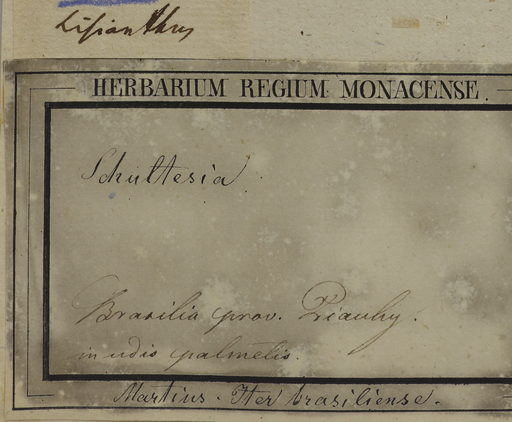 Lisianthus
HERBARIUM REGIUM MONACENSE.
Schultesia
Brasilia prov. Piauhy.
in udis palmetis.
Martius. Iter brasiliense.